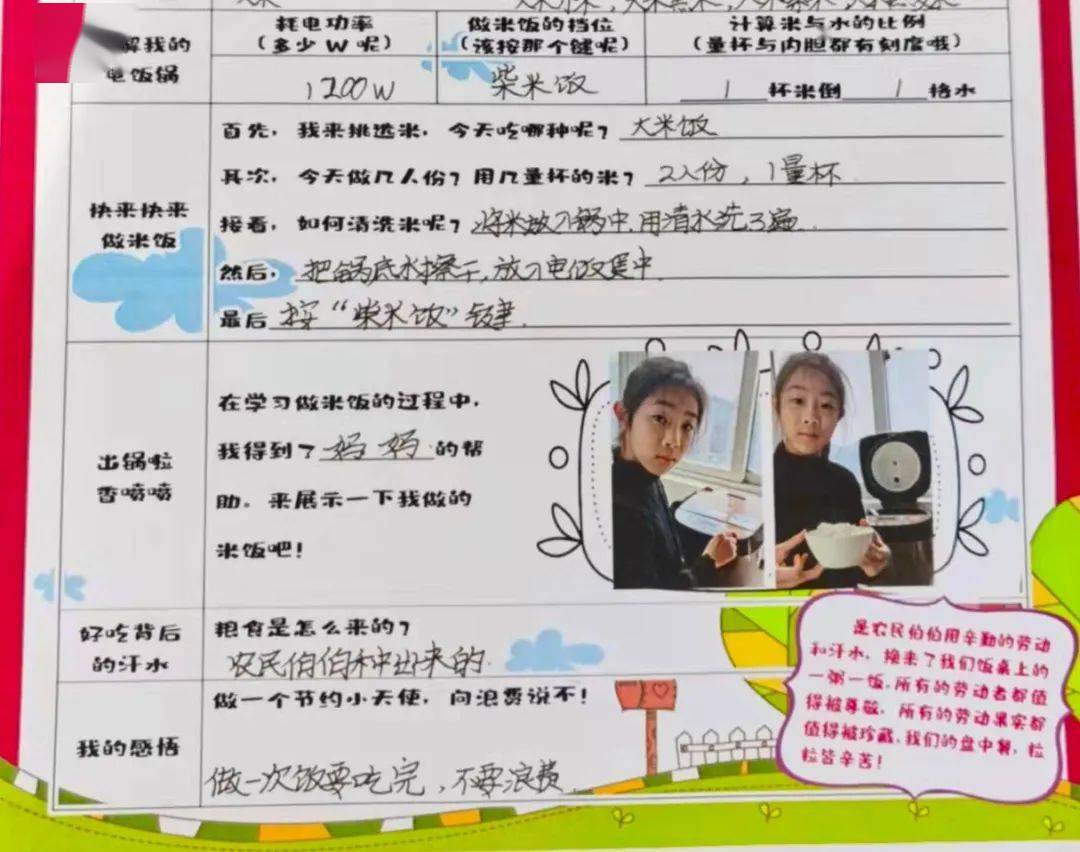 解我的
电饭锅
耗电功率
（多少W呢）
做米饭的挡位
（该按那个键呢）
计算米与水的比例
（量杯与内胆都有刻度哦）
1200W
柴米饭
1杯米倒1格水
快来快来
做米饭
首先，我来挑选米，今天吃哪种呢？大米饭
其次，今天做几人份？用几量杯的米？2人份，1量杯
接着，如何清洗米呢？将米放入锅中，用清水洗3遍.
然后，把锅底水擦干，放入电饭煲中
最后按“柴米饭”键.
出锅啦
香喷喷
在学习做米饭的过程中，
我得到了妈妈的帮
助。来展示一下我做的
米饭吧！
好吃背后
的汗水
粮食是怎么来的？
农民伯伯种出来的.
是农民伯伯用辛勤的劳动
和汗水，换来了我们饭桌上的
一粥一饭。所有的劳动者都值
得被尊敬，所有的劳动果实都
值得被珍藏。我们的盘中餐，粒
粒皆辛苦！
我的感悟
做一个节约小天使，向浪费说不！
做一次饭要吃完，不要浪费